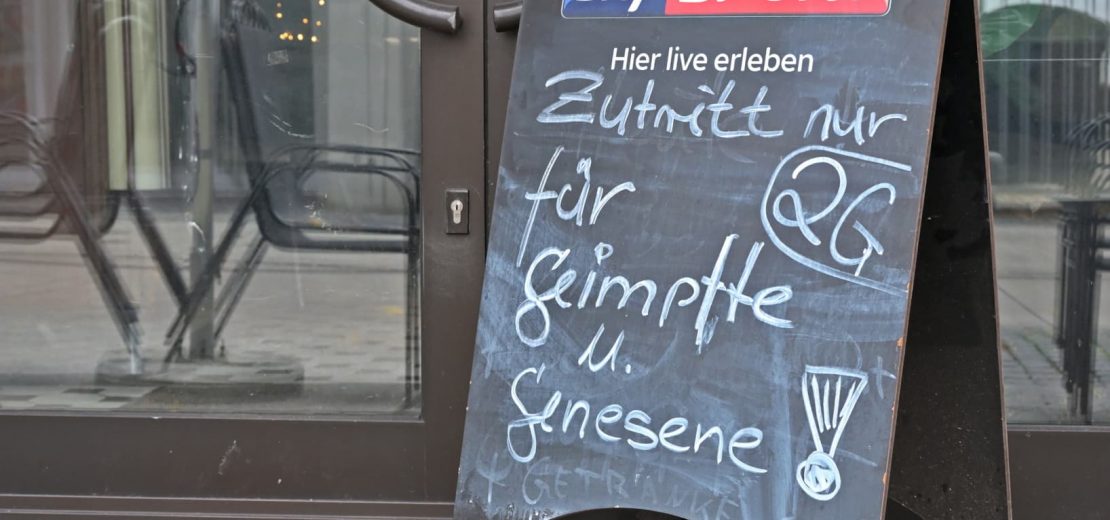 Hier live erleben
Zutritt nur
für 2G
Geimpfte
u.
Genesene !
+ GETRÄNKE